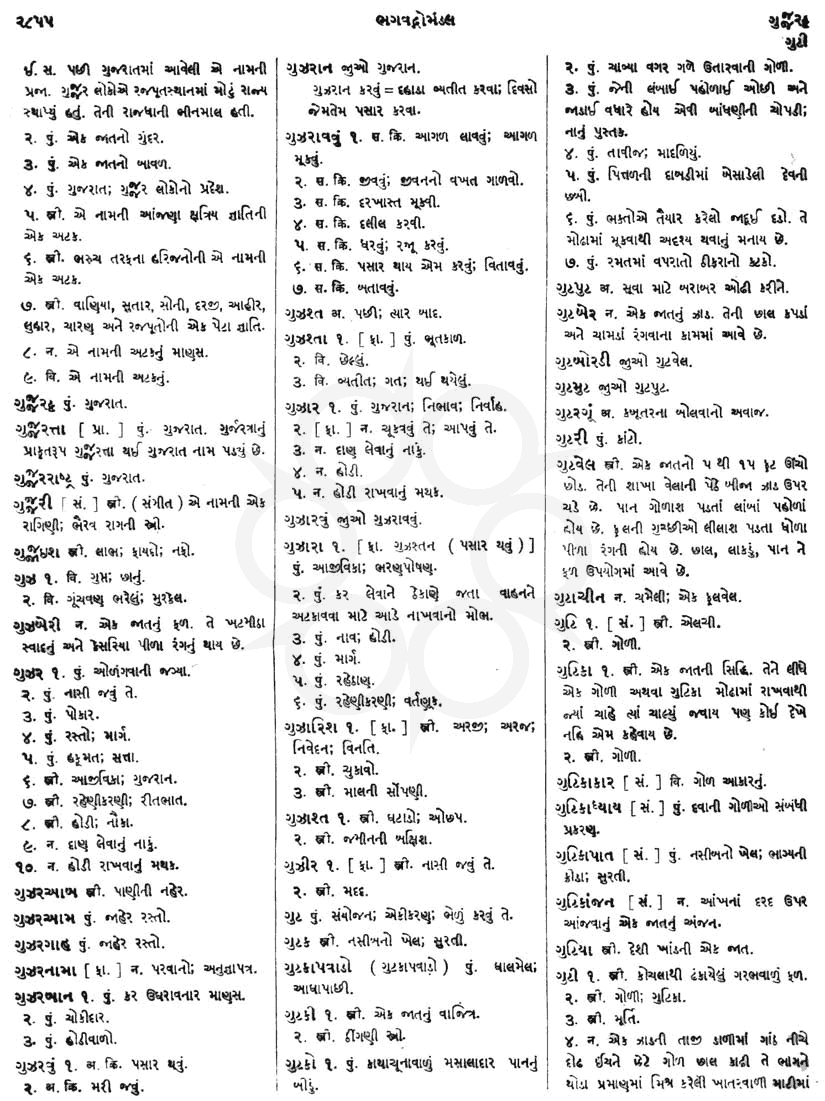 ૨૮૫૫
ભગવદ્ગોમંડલ
ગુર્જ્જરટ્ટ
ગુટી
ઈ. સ. પછી ગુજરાતમાં આવેલી એ નામની
પ્રજા. ગુર્જ્જર લોકોએ રજપૂતસ્થાનમાં મોટું રાજ્ય
સ્થાપ્યું હતું. તેની રાજધાની ભીનમાલ હતી.
૨. પું. એક જાતનો ગુંદર.
૩. પું. એક જાતનો બાવળ.
૪. પું. ગુજરાત; ગુર્જ્જર લોકોનો પ્રદેશ.
૫. સ્ત્રી. એ નામની આંજણા ક્ષત્રિય જ્ઞાતિની
એક અટક.
૬. સ્ત્રી. ભરુચ તરફના હરિજનોની એ નામની
એક અટક.
૭. સ્ત્રી. વાણિયા, સુતાર, સોની, દરજી, આહીર,
લુહાર, ચારણ અને રજપૂતોની એક પેટા જ્ઞાતિ.
૮. ન. એ નામની અટકનું માણસ.
૯. વિ. એ નામની અટકનું.
ગુર્જ્જરટ્ટ પું. ગુજરાત.
ગુર્જ્જરત્તા [ પ્રા. ] પું. ગુજરાત. ગુર્જરત્રાનું
પ્રાકૃતરૂપ ગુર્જ્જરત્તા થઈ ગુજરાત નામ પડ્યું છે.
ગુર્જ્જરરાષ્ટ્ર પું. ગુજરાત.
ગુર્જ્જરી [ સં. ] સ્ત્રી. ( સંગીત ) એ નામની એક
રાગિણી; ભૈરવ રાગની સ્ત્રી.
સ્ત્રી. લાભ; ફાયદો; નફો.
ગુઝ ૧. વિ. ગુપ્ત; છાનું.
૨. વિ. ગૂંચવણ ભરેલું; મુશ્કેલ.
ગુઝબેરી ન. એક જાતનું ફળ. તે ખટમીઠા
સ્વાદનું અને કેસરિયા પીળા રંગનું થાય છે.
ગુઝર ૧. પું. ઓળંગવાની જગ્યા.
૨. પું. નાસી જવું તે.
૩. પું. પોકાર.
૪. પું. રસ્તો; માર્ગ.
૫. પું. હકૂમત; સત્તા.
૬. સ્ત્રી. આજીવિકા; ગુજરાન.
૭. સ્ત્રી. રહેણીકરણી; રીતભાત.
૮. સ્ત્રી. હોડી; નૌકા.
૯. ન. દાણ લેવાનું નાકું.
૧૦. ન. હોડી રાખવાનું મથક.
ગુઝરઆબ સ્ત્રી. પાણીની નહેર.
ગુઝરઆમ પું. જાહેર રસ્તો.
ગુઝરગાહ પું. જાહેર રસ્તો.
ગુઝરનામા [ ફા. ] ન. પરવાનો; અનુજ્ઞાપત્ર.
ગુઝરબાન ૧. પું. કર ઉઘરાવનાર માણસ.
૨. પું. ચોકીદાર.
૩. પું. હોડીવાળો.
ગુઝરવું ૧. અ. ક્રિ. પસાર થવું.
૨. અ. ક્રિ. મરી જવું.
ગુઝરાન જુઓ ગુજરાન.
ગુઝરાન કરવું = દહાડા વ્યતીત કરવા; દિવસો
જેમતેમ પસાર કરવા.
ગુઝરાવવું ૧. સ. ક્રિ. આગળ લાવવું; આગળ
મૂકવું.
૨. સ. ક્રિ. જીવવું; જીવનનો વખત ગાળવો.
૩. સ. ક્રિ. દરખાસ્ત મૂકવી.
૪. સ. ક્રિ. દલીલ કરવી.
૫. સ. ક્રિ. ધરવું; રજૂ કરવું.
૬. સ. ક્રિ. પસાર થાય એમ કરવું; વિતાવવું.
૭. સ. ક્રિ. બતાવવું.
ગુઝશ્ત અ. પછી; ત્યાર બાદ.
ગુઝશ્તા ૧. [ ફા. ] પું. ભૂતકાળ.
૨. વિ. છેલ્લું.
૩. વિ. વ્યતીત; ગત; થઈ ગયેલું.
ગુઝાર ૧. પું. ગુજરાન; નિભાવ; નિર્વાહ.
૨. [ ફા. ] ન. ચૂકવવું તે; આપવું તે.
૩. ન. દાણ લેવાનું નાકું.
૪. ન. હોડી.
૫. ન. હોડી રાખવાનું મથક.
ગુઝારવું જુઓ ગુઝરાવવું.
ગુઝારા ૧. [ ફા. ગુઝસ્તન ( પસાર થવું ) ]
પું. આજીવિકા; ભરણપોષણ.
૨. પું. કર લેવાને ઠેકાણે જતા વાહનને
અટકાવવા માટે આડે નાખવાનો મોભ.
૩. પું. નાવ; હોડી.
૪. પું. માર્ગ.
૫. પું. રહેઠાણ.
૬. પું. રહેણીકરણી; વર્તણૂક.
ગુઝારિશ ૧. [ ફા. ] સ્ત્રી. અરજી; અરજ;
નિવેદન; વિનતિ.
૨. સ્ત્રી. ચુકાવો.
૩. સ્ત્રી. માલની સોંપણી.
ગુઝાશ્ત ૧. સ્ત્રી. ઘટાડો; ઓછપ.
૨. સ્ત્રી. જમીનની બક્ષિશ.
ગુઝીર ૧. [ ફા. ] સ્ત્રી. નાસી જવું તે.
૨. સ્ત્રી. મદદ.
ગુટ પું. સંયોજન; એકીકરણ; ભેળું કરવું તે.
ગુટક સ્ત્રી. નસીબનો ખેલ; સુરતી.
ગુટકાપત્રાડો ( ગુટકાપવાડો ) પું. ધાલમેલ;
આઘાપાછી.
ગુટકી ૧. સ્ત્રી. એક જાતનું વાજિંત્ર.
૨. સ્ત્રી. ઠીંગણી સ્ત્રી.
ગુટકો ૧. પું. કાથાચૂનાવાળું મસાલાદાર પાનનું
બીડું.
૨. પું. ચાવ્યા વગર ગળે ઉતારવાની ગોળી.
૩. પું. જેની લંબાઈ પહોળાઈ ઓછી અને
જાડાઈ વધારે હોય એવી બાંધણીની ચોપડી;
નાનું પુસ્તક.
૪. પું. તાવીજ; માદળિયું.
૫. પું. પિત્તળની દાબડીમાં બેસાડેલી દેવની
છબી.
૬. પું. ભક્તોએ તૈયાર કરેલો જાદૂઈ દડો. તે
મોઢામાં મૂકવાથી અદૃશ્ય થવાનું મનાય છે.
૭. પું. રમતમાં વપરાતો ઠીકરાનો કટકો.
ગુટપુટ અ. સૂવા માટે બરાબર ઓઢી કરીને.
ગુટબેર ન. એક જાતનું ઝાડ. તેની છાલ કપડાં
અને ચામડાં રંગવાના કામમાં આવે છે.
ગુટબોરડી જુઓ ગુટવેલ.
ગુટમુટ જુઓ ગુટપુટ.
ગુટરગૂં અ. કબૂતરના બોલવાનો અવાજ.
ગુટરી પું. કાંટો.
ગુટવેલ સ્ત્રી. એક જાતનો ૫ થી ૧૫ ફૂટ ઊંચો
છોડ. તેની શાખા વેલાની પેઠે બીજા ઝાડ ઉપર
ચડે છે. પાન ગોળાશ પડતાં લાંબાં પહોળાં
હોય છે. ફૂલની ગુચ્છીઓ લીલાશ પડતા ધોળા
પીળા રંગની હોય છે. છાલ, લાકડું, પાન ને
ફળ ઉપયોગમાં આવે છે.
ગુટાચીન ન. ચમેલી; એક ફૂલવેલ.
ગુટિ ૧. [ સં. ] સ્ત્રી. એલચી.
૨. સ્ત્રી. ગોળી.
ગુટિકા ૧. સ્ત્રી. એક જાતની સિદ્ધિ. તેને લીધે
એક ગોળી અથવા ગુટિકા મોઢામાં રાખવાથી
જ્યાં ચાહે ત્યાં ચાલ્યું જવાય પણ કોઈ દેખે
નહિ એમ કહેવાય છે.
૨. સ્ત્રી. ગોળી.
ગુટિકાકાર [ સં. ] વિ. ગોળ આકારનું.
ગુટિકાધ્યાય [ સં. ] પું. દવાની ગોળીઓ સંબંધી
પ્રકરણ.
ગુટિકાપાત [ સં. ] પું. નસીબનો ખેલ; ભાગ્યની
ક્રીડા; સુરતી.
ગુટિકાંજન [ સં. ] ન. આંખનાં દરદ ઉપર
આંજવાનું એક જાતનું અંજન.
ગુટિયા સ્ત્રી. દેશી ખાંડની એક જાત.
ગુટી ૧. સ્ત્રી. કોચલાથી ઢંકાયેલું ગરભવાળું ફળ.
૨. સ્ત્રી. ગોળી; ગુટિકા.
૩. સ્ત્રી. મૂર્તિ.
૪. ન. એક ઝાડની તાજી ડાળમાં ગાંઠ નીચે
દોઢ ઈંચને છેટે ગોળ છાલ કાઢી તે ભાગને
થોડા પ્રમાણમાં મિશ્ર કરેલી ખાતરવાળી માટીમાં